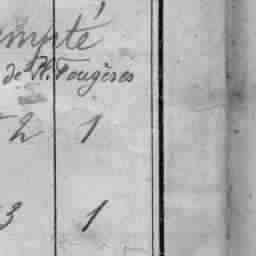 empté
de H. Fougères
2 1
3 1